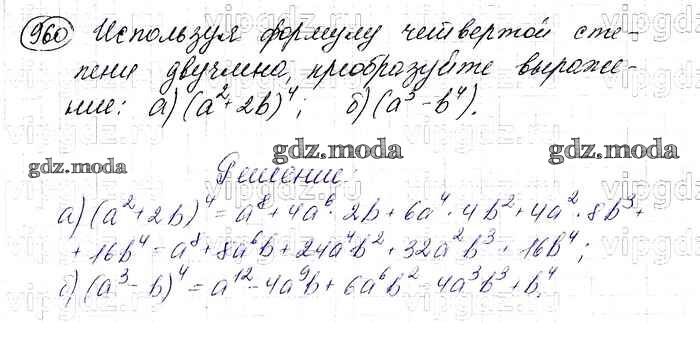 960 Используя формулу четвертой сте-
пени двучлена, преобразуйте выраже-
ние: а) (a²+2b)⁴; б) (a³-b⁴).
gdz.moda gdz.moda gdz.moda
Решение:
а) (a²+2b)⁴=a⁸+4a⁶·2b+6a⁴·4b²+4a²·8b³+
+16b⁴=a⁸+8a⁶b+24a⁴b²+32a²b³+16b⁴;
б) (a³-b)⁴=a¹²-4a⁹b+6a⁶b²-4a³b³+b⁴.